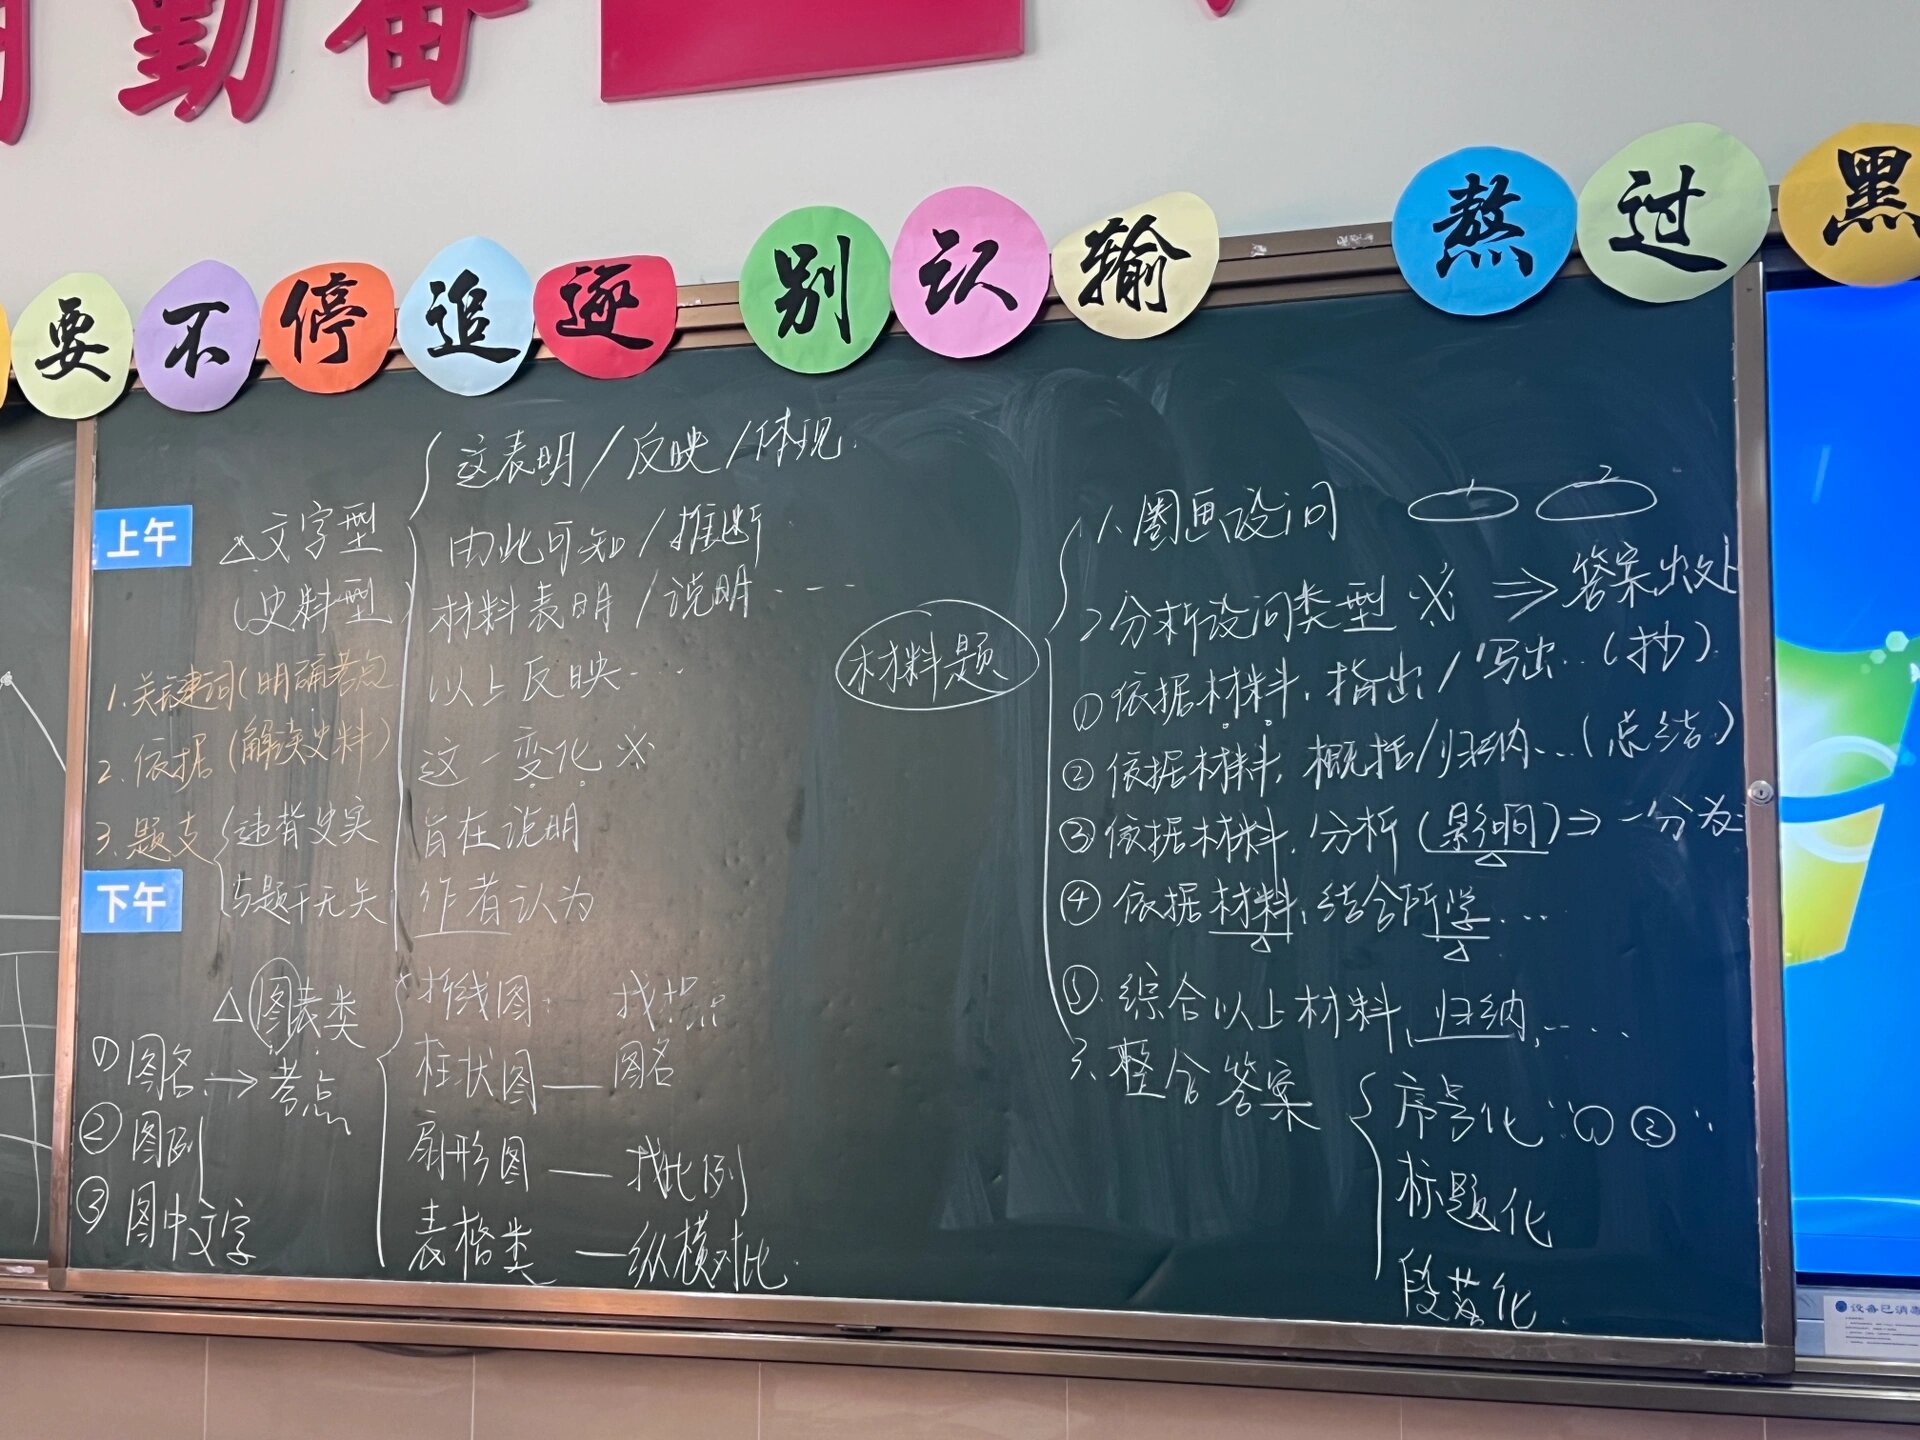 勤奋
要不停追逐 别认输 熬过黑
上午
△文字型
(史料型)
这表明/反映/体现
由此可知/推断
材料表明/说明....
以上反映...
这一变化※
旨在说明
作者认为
1.关键词(明确考点
2.依据(解读史料)
3.题支
违背史实
与题干无关
下午
△图表类
①图名→考点
②图例
③图中文字
折线图: 找拐点
柱状图——图名
扇形图——找比例
表格类——纵横对比.
材料题
1.圈画设问 1 2
2分析设问类型※⇒答案出处
①依据材料,指出/写出..(抄)
②依据材料,概括/归纳...(总结)
③依据材料,分析(影响)⇒一分为
④依据材料,结合所学...
⑤.综合以上材料,归纳,....
3.整合答案
序号化"①②"
标题化
段落化.
设备已消毒